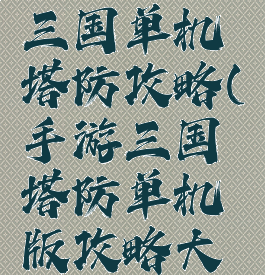 三国单机
塔防攻略(
手游三国
塔防单机
版攻略大